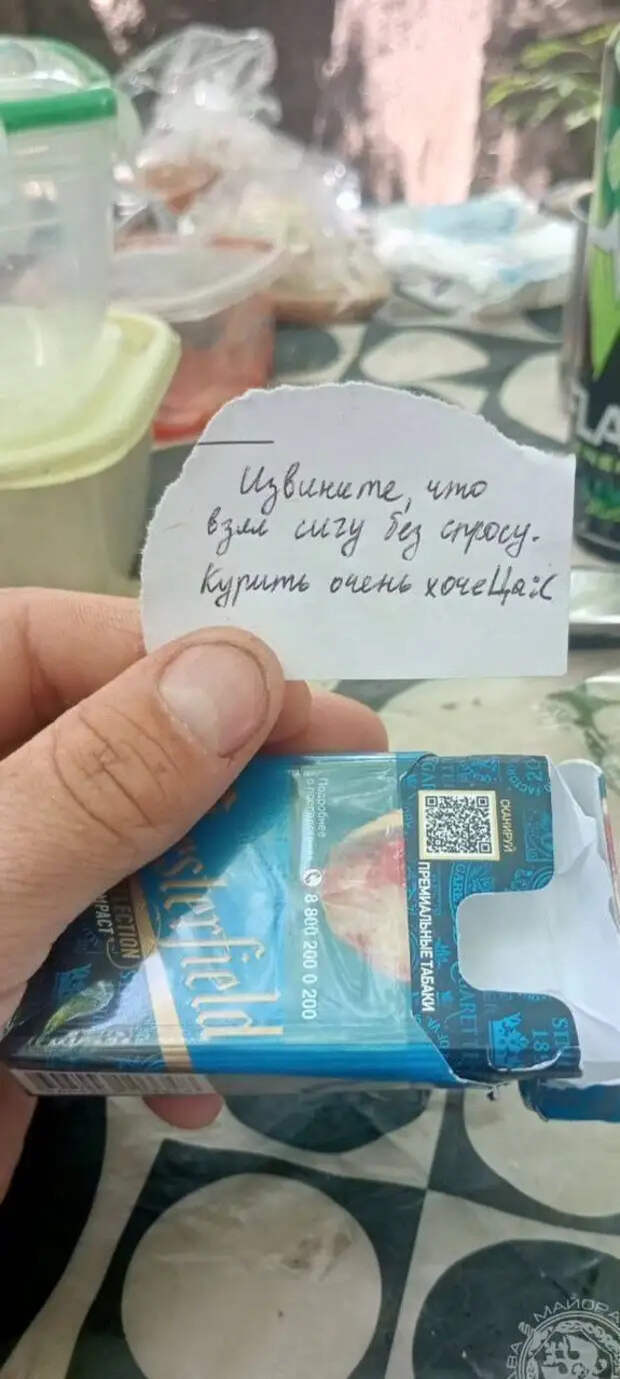 Извините, что
взял сигу без спросу.
Курить очень хочеЦа:(
FLA
Подробнее
8 800 200 0 200
СКАНИРУЙ
ПРЕМИАЛЬНЫЕ ТАБАКИ
sterfield
LECTION
МАЙОРА